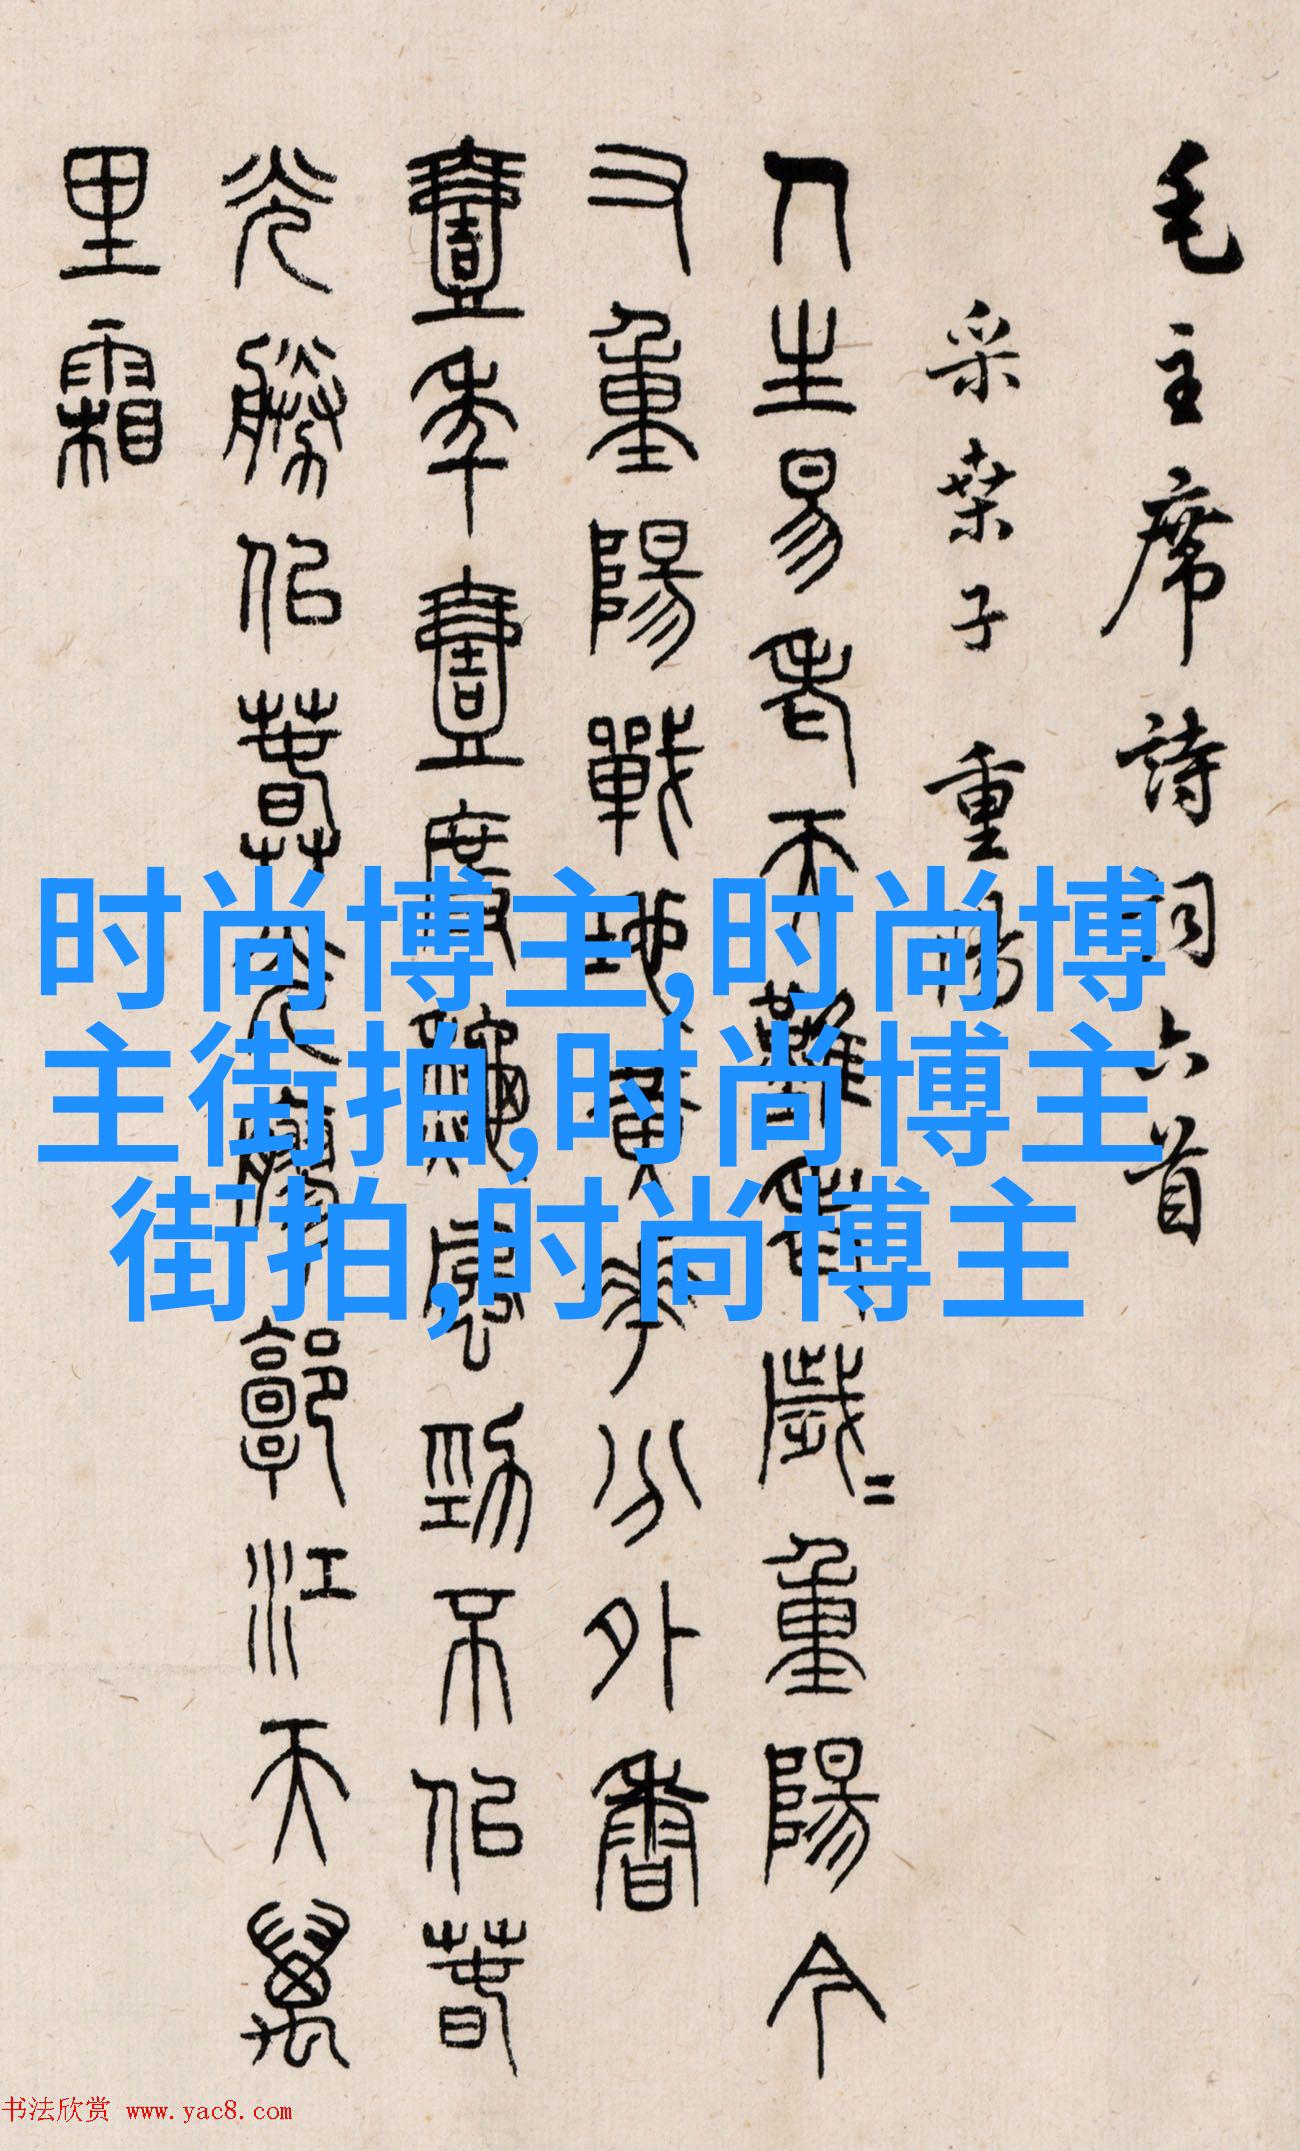 毛主席詩詞六首
采桑子 重陽
人生易老天難老歲〻重陽今
又重陽戰地黃華分外香
壹年壹度龝風勁不佀萅
光勝佀萅光廫郭江天萬
里霜
时尚博主,时尚博
主街拍,时尚博主
街拍,时尚博主
书法欣赏 www.yac8.com